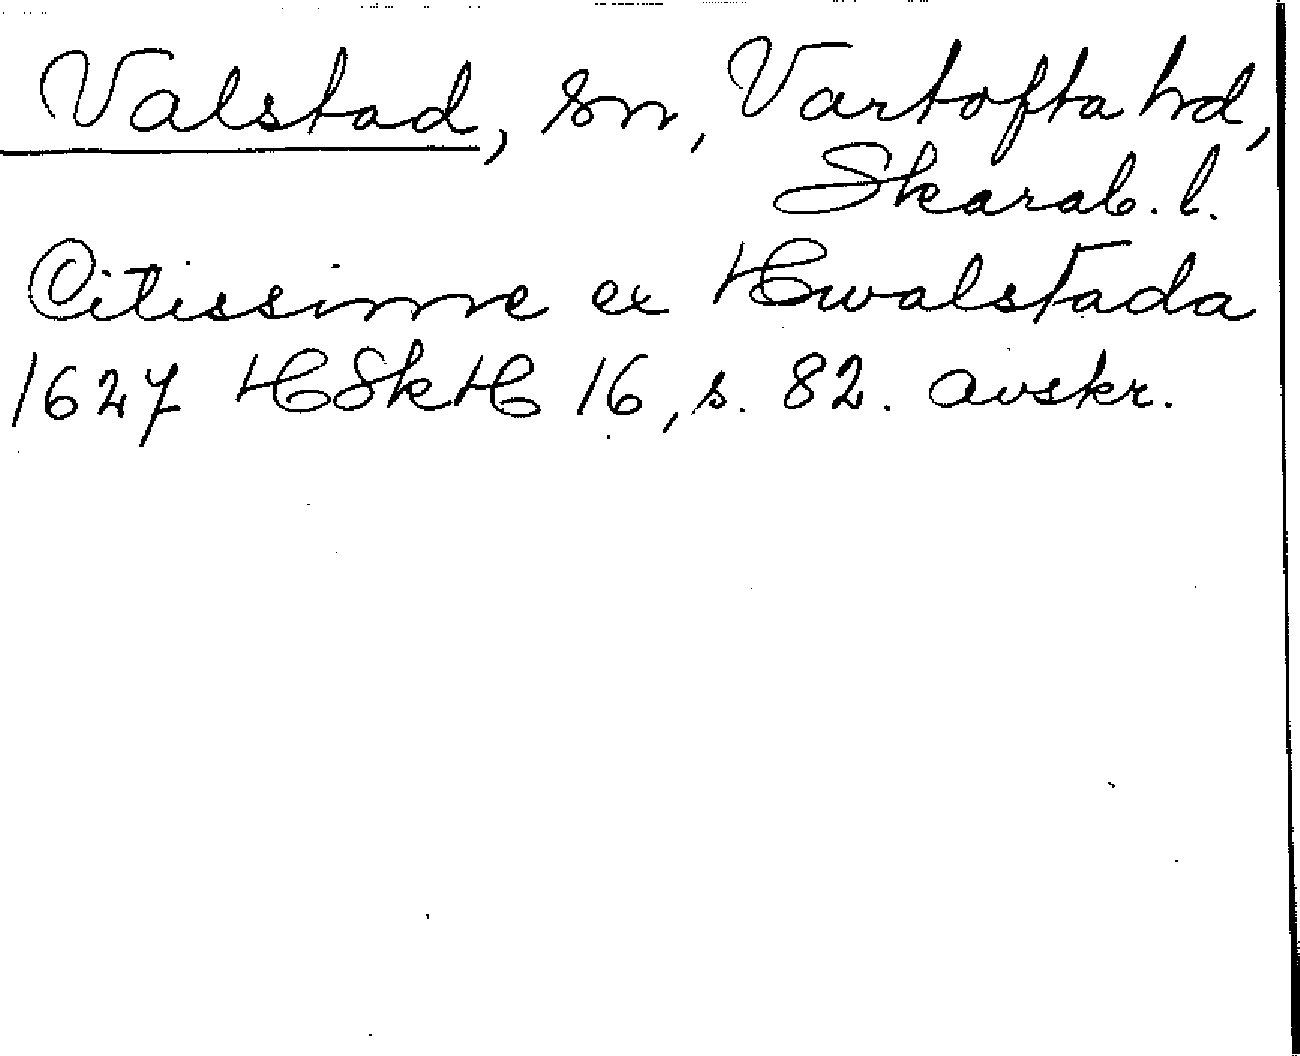 Valstad, sn, Vartofta hd,
Skarab. l.
Citissime ex Hwalstada
1627 HSkH 16, s. 82. avskr.